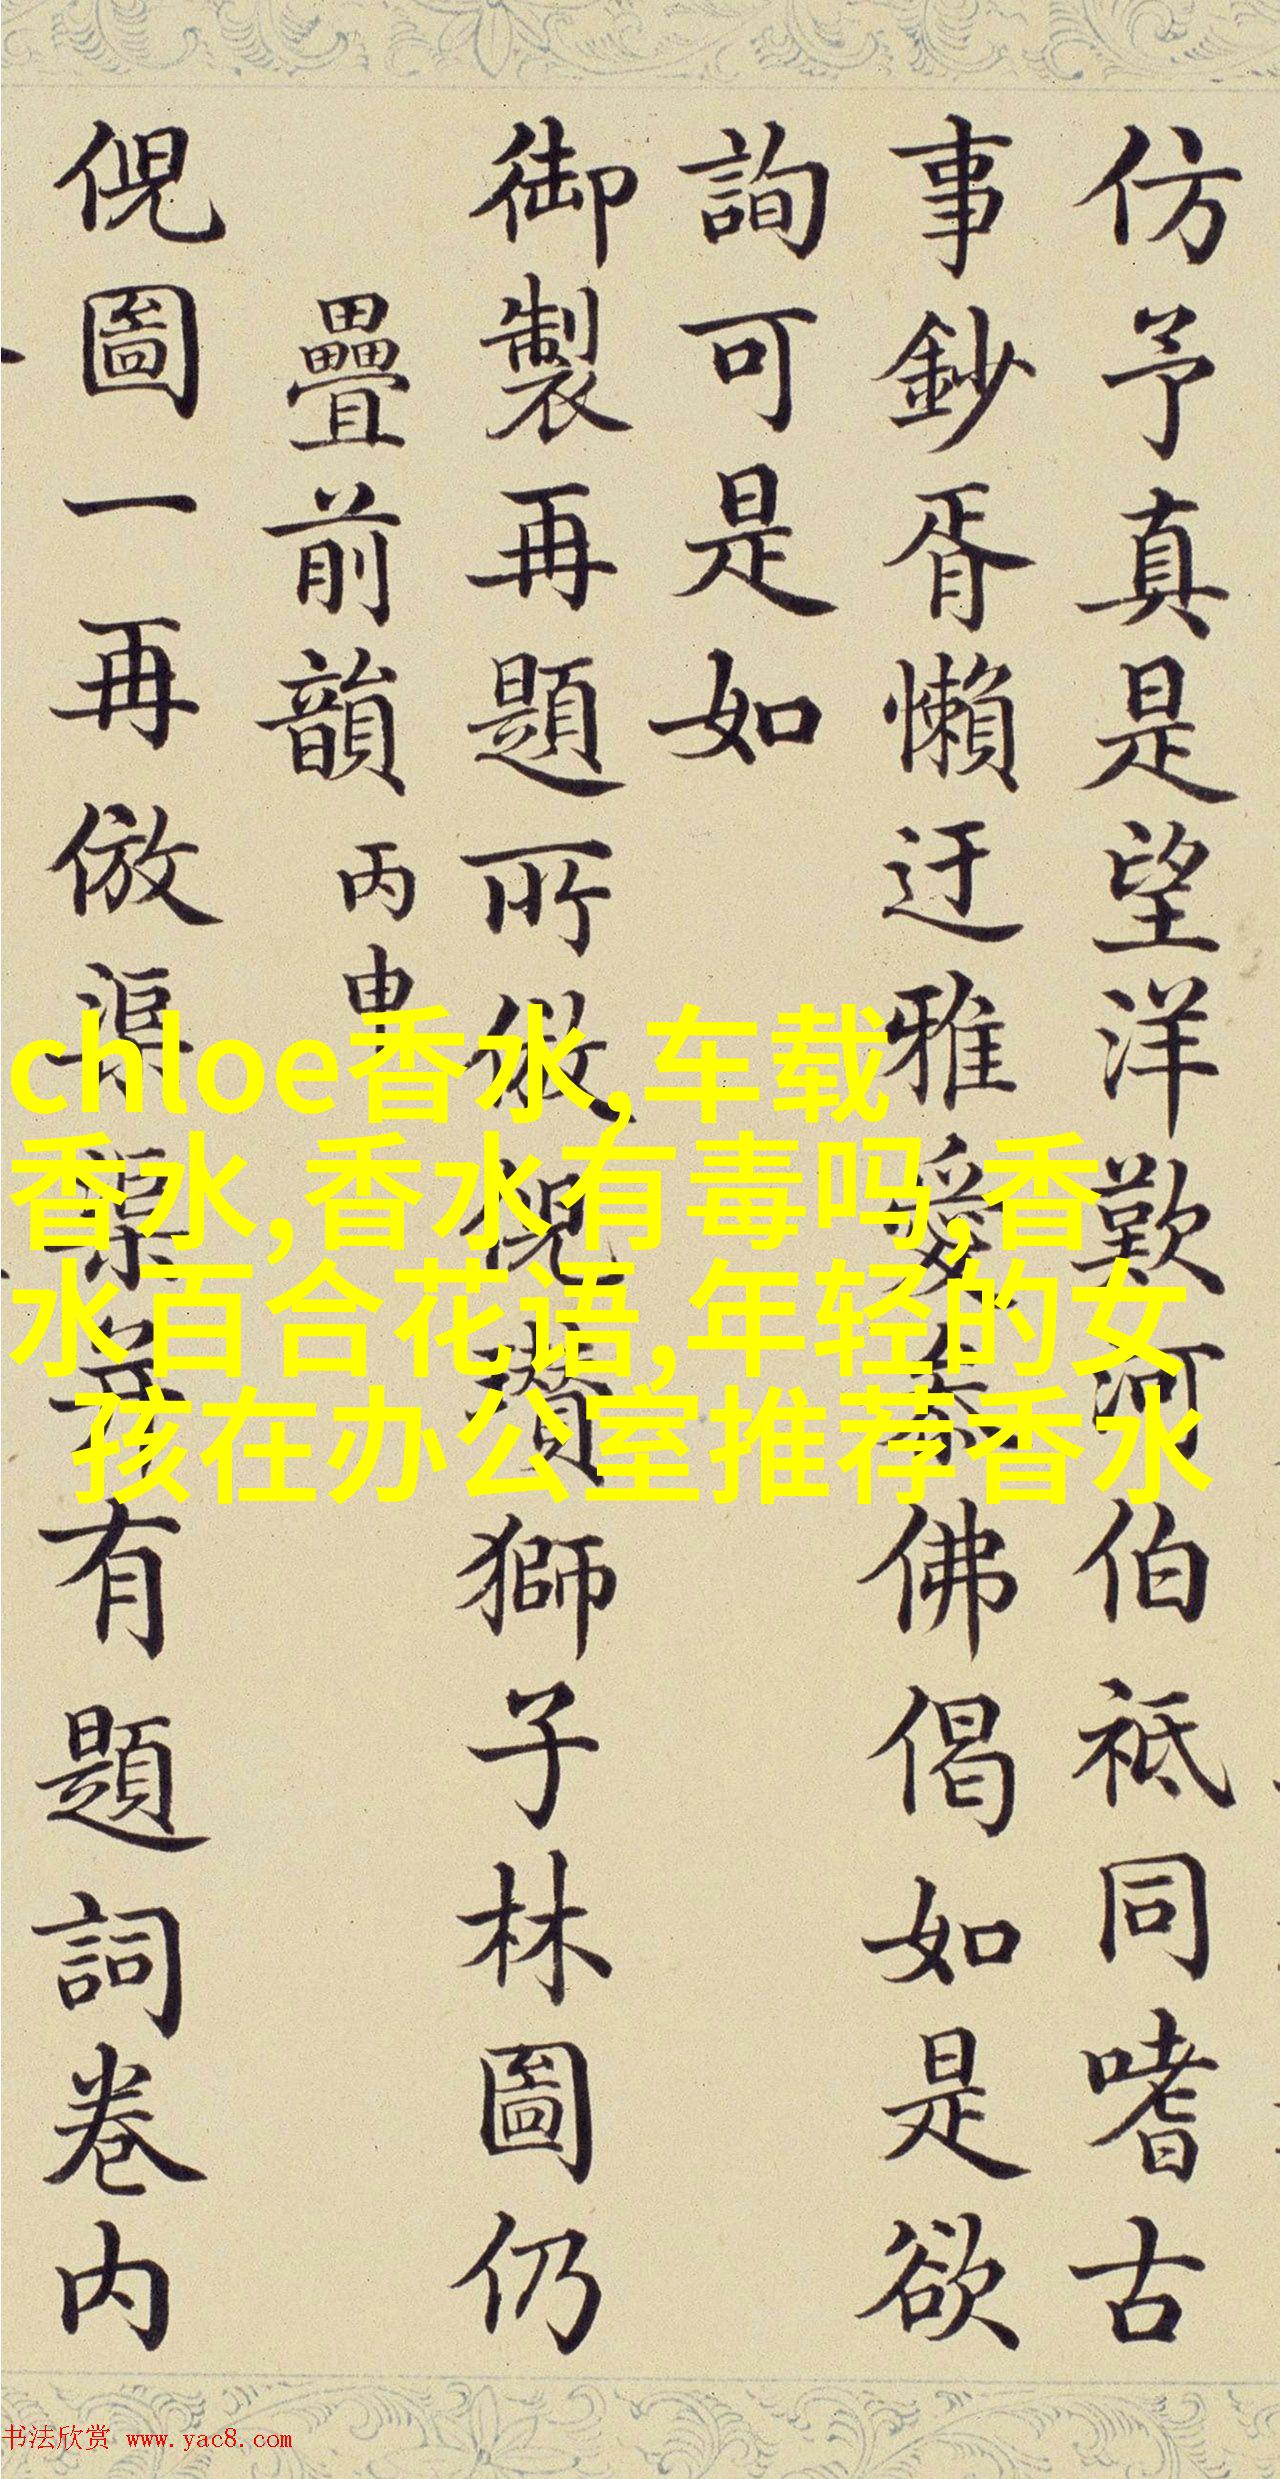 仿予真是望洋歎河伯祗同嗜古
事鈔胥懶迂雅愛泰佛偈如是欲
詢可是如
御製再題所倣倪瓚獅子林圖仍
疊前韻 丙申
倪圖一再倣
有題詞卷内
chloe香水,车载
香水,香水有毒吗,香
水百合花语,年轻的女
孩在办公室推荐香水
书法欣赏 www.yac8.com